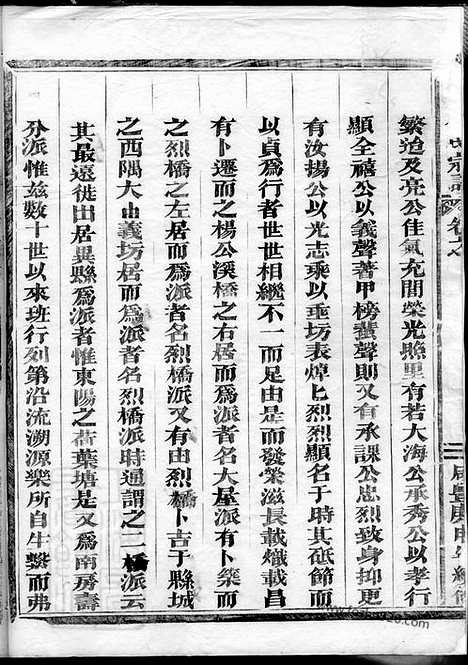 繁迨及亮公佳氣充閭榮光照里有若大海公承秀公以孝行
顯全禧公以義聲著甲榜蜚聲則又有承課公忠烈致身抑更
有汝揚公以光志乘以垂坊表焯匕烈烈顯名于時其砥節而
以貞爲行者世世相繼不一而足由是而發榮滋長載熾載昌
有卜遷而之楊公溪橋之右居而爲派者名大屋派有卜築而
之烈橋之左居而爲派者名烈橋派又有由烈橋卜吉于縣城
之西隅大由義坊居而爲派者名烈橋派時通謂之二橋派云
其最遠徙出居異縣爲派者惟東陽之荷葉塘是又爲南房壽
分派惟玆數十世以來班行列第沿流溯源樂所自生繫而弗